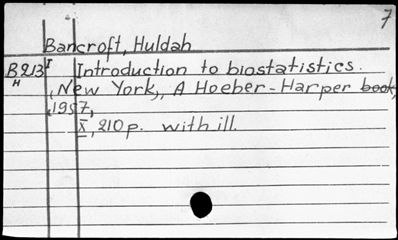 7
Bancroft, Huldah
B213 I Introduction to biostatistics.
H , New York,, A Hoeber-Harper book,
,1957,
X, 210 p. with ill.